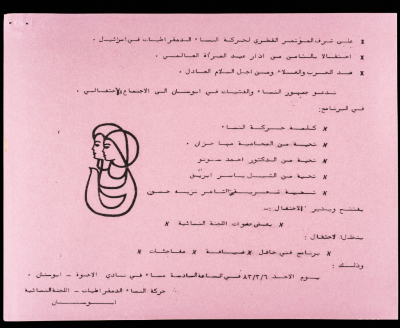 * على شرف المؤتمر القطري لحركة النساء الديمقراطيات في اسرائيل .
* احتفالا بالثامن من اذار عيد المرأة العالمي .
* ضد الحرب والغلاء ومن اجل السلام العادل .
ندعو جمهور النساء والفتيات في ابوسنان الى الاجتماع الاحتفالي .
في البرنامج:
* كلمة حركة النساء
* تحية من المحامية مها
* تحية من الدكتور احمد
* تحية من الشبل ياسر ابريق
* تحية شعرية الشاعر نزيه حسون
يفتتح ويدير الاحتفال :-
* بعض عضوات اللجنة النسائية *
يتخلل الاحتفال :
* برنامج فني حافل * ضيافة * مفاجئات *
وذلك :
يوم الاحد ٨٣/٣/٦ في الساعة السادسة مساء في نادي الاخوة - ابوسنان .
حركة النساء الديمقراطيات - اللجنة النسائية
ابوسنان